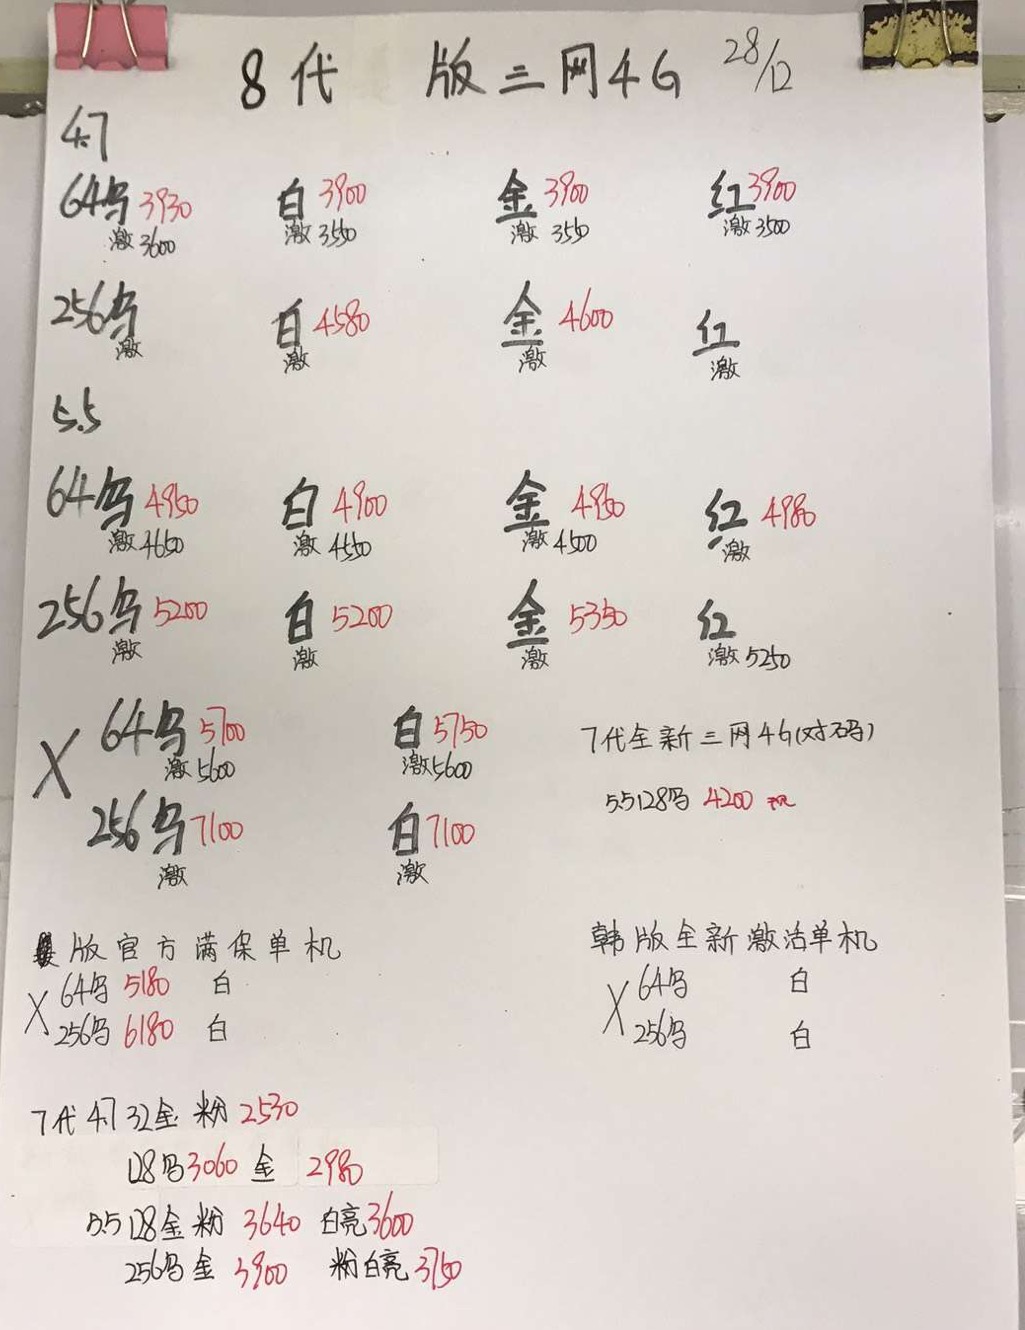 8代 版三网4G 28/12
4.7
64乌 3930 白 3900 金 3900 红 3900
激 3600 激 3550 激 3550 激 3500
256乌 白 4580 金 4600 红
激 激 激 激
5.5
64乌 4950 白 4900 金 4950 红 4980
激 4650 激 4550 激 4500 激
256乌 5200 白 5200 金 5350 红
激 激 激 激 5250
X 64乌 5700 白 5750
激 5600 激 5600
256乌 7100 白 7100
激 激
7代全新三网4G(对码)
5.5 128乌 4200
版官方满保单机
X 64乌 5180 白
256乌 6180 白
韩版全新激活单机
X 64乌 白
256乌 白
7代 4.7 32金 粉 2530
128乌 3060 金 2980
5.5 128金粉 3640 白亮 3600
256乌金 3900 粉白亮 3750